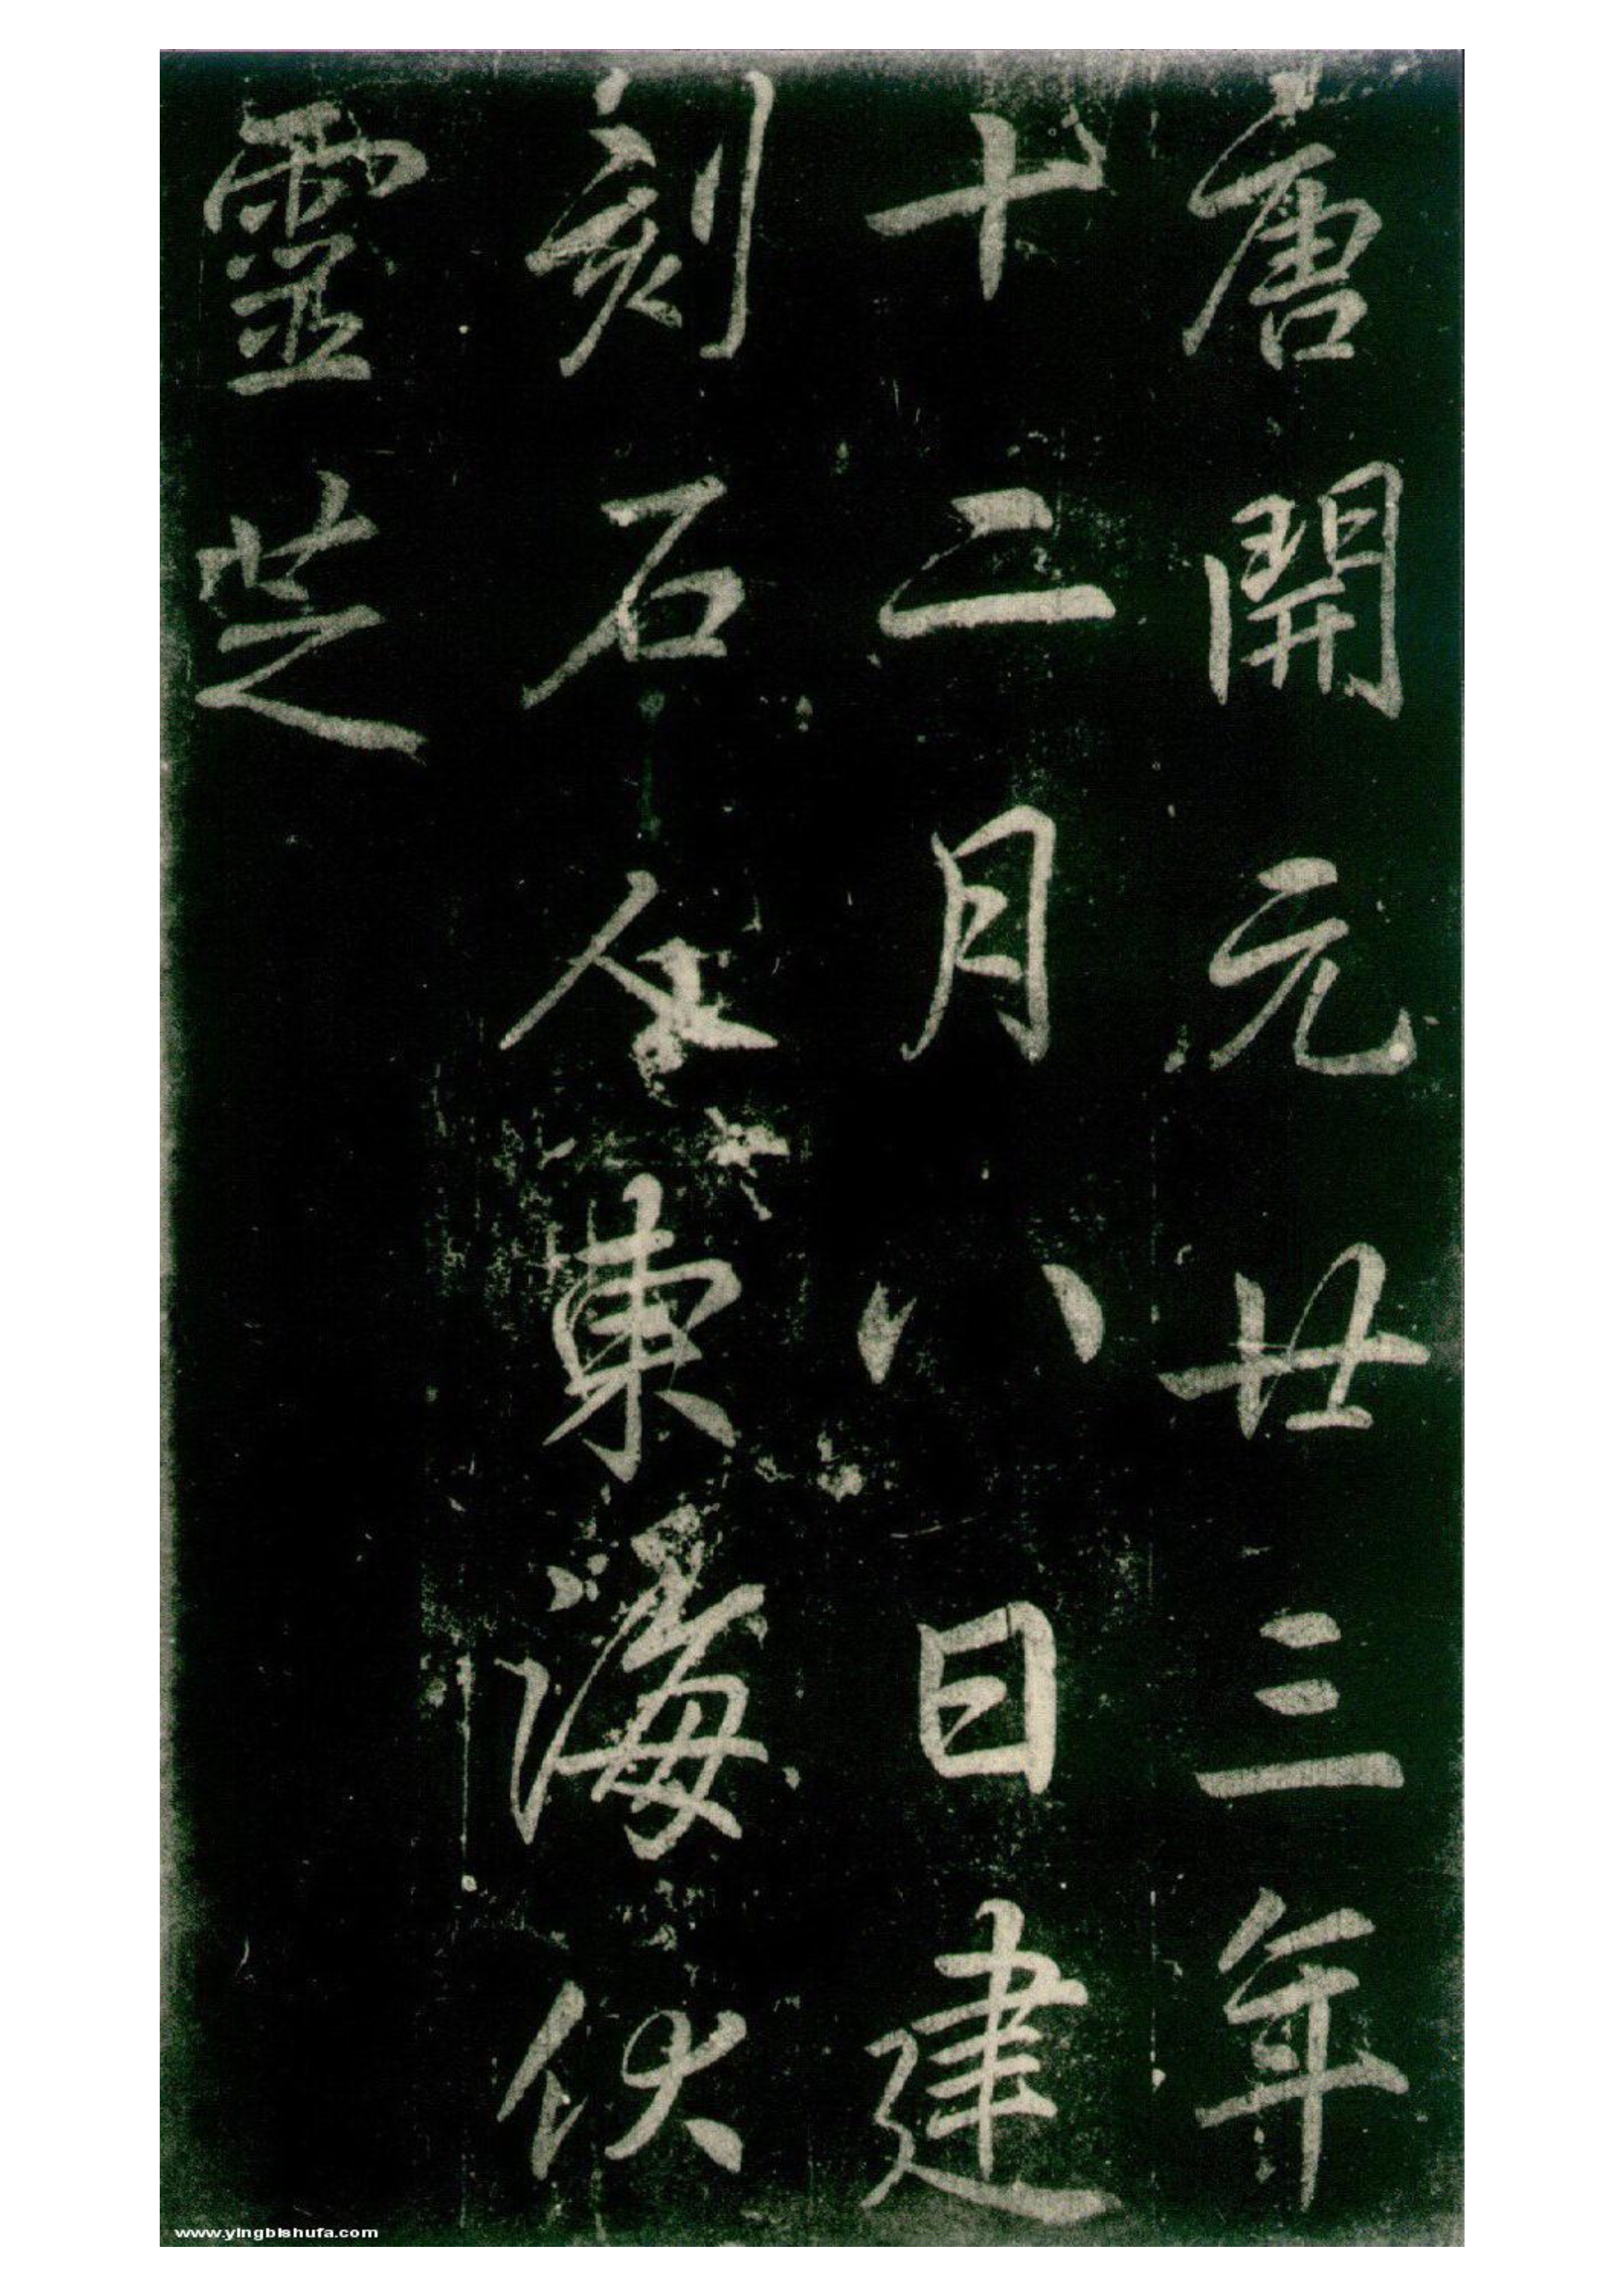 唐開元廿三年
十二月八日建
刻石人東海伏
靈芝
www.yingbishufa.com